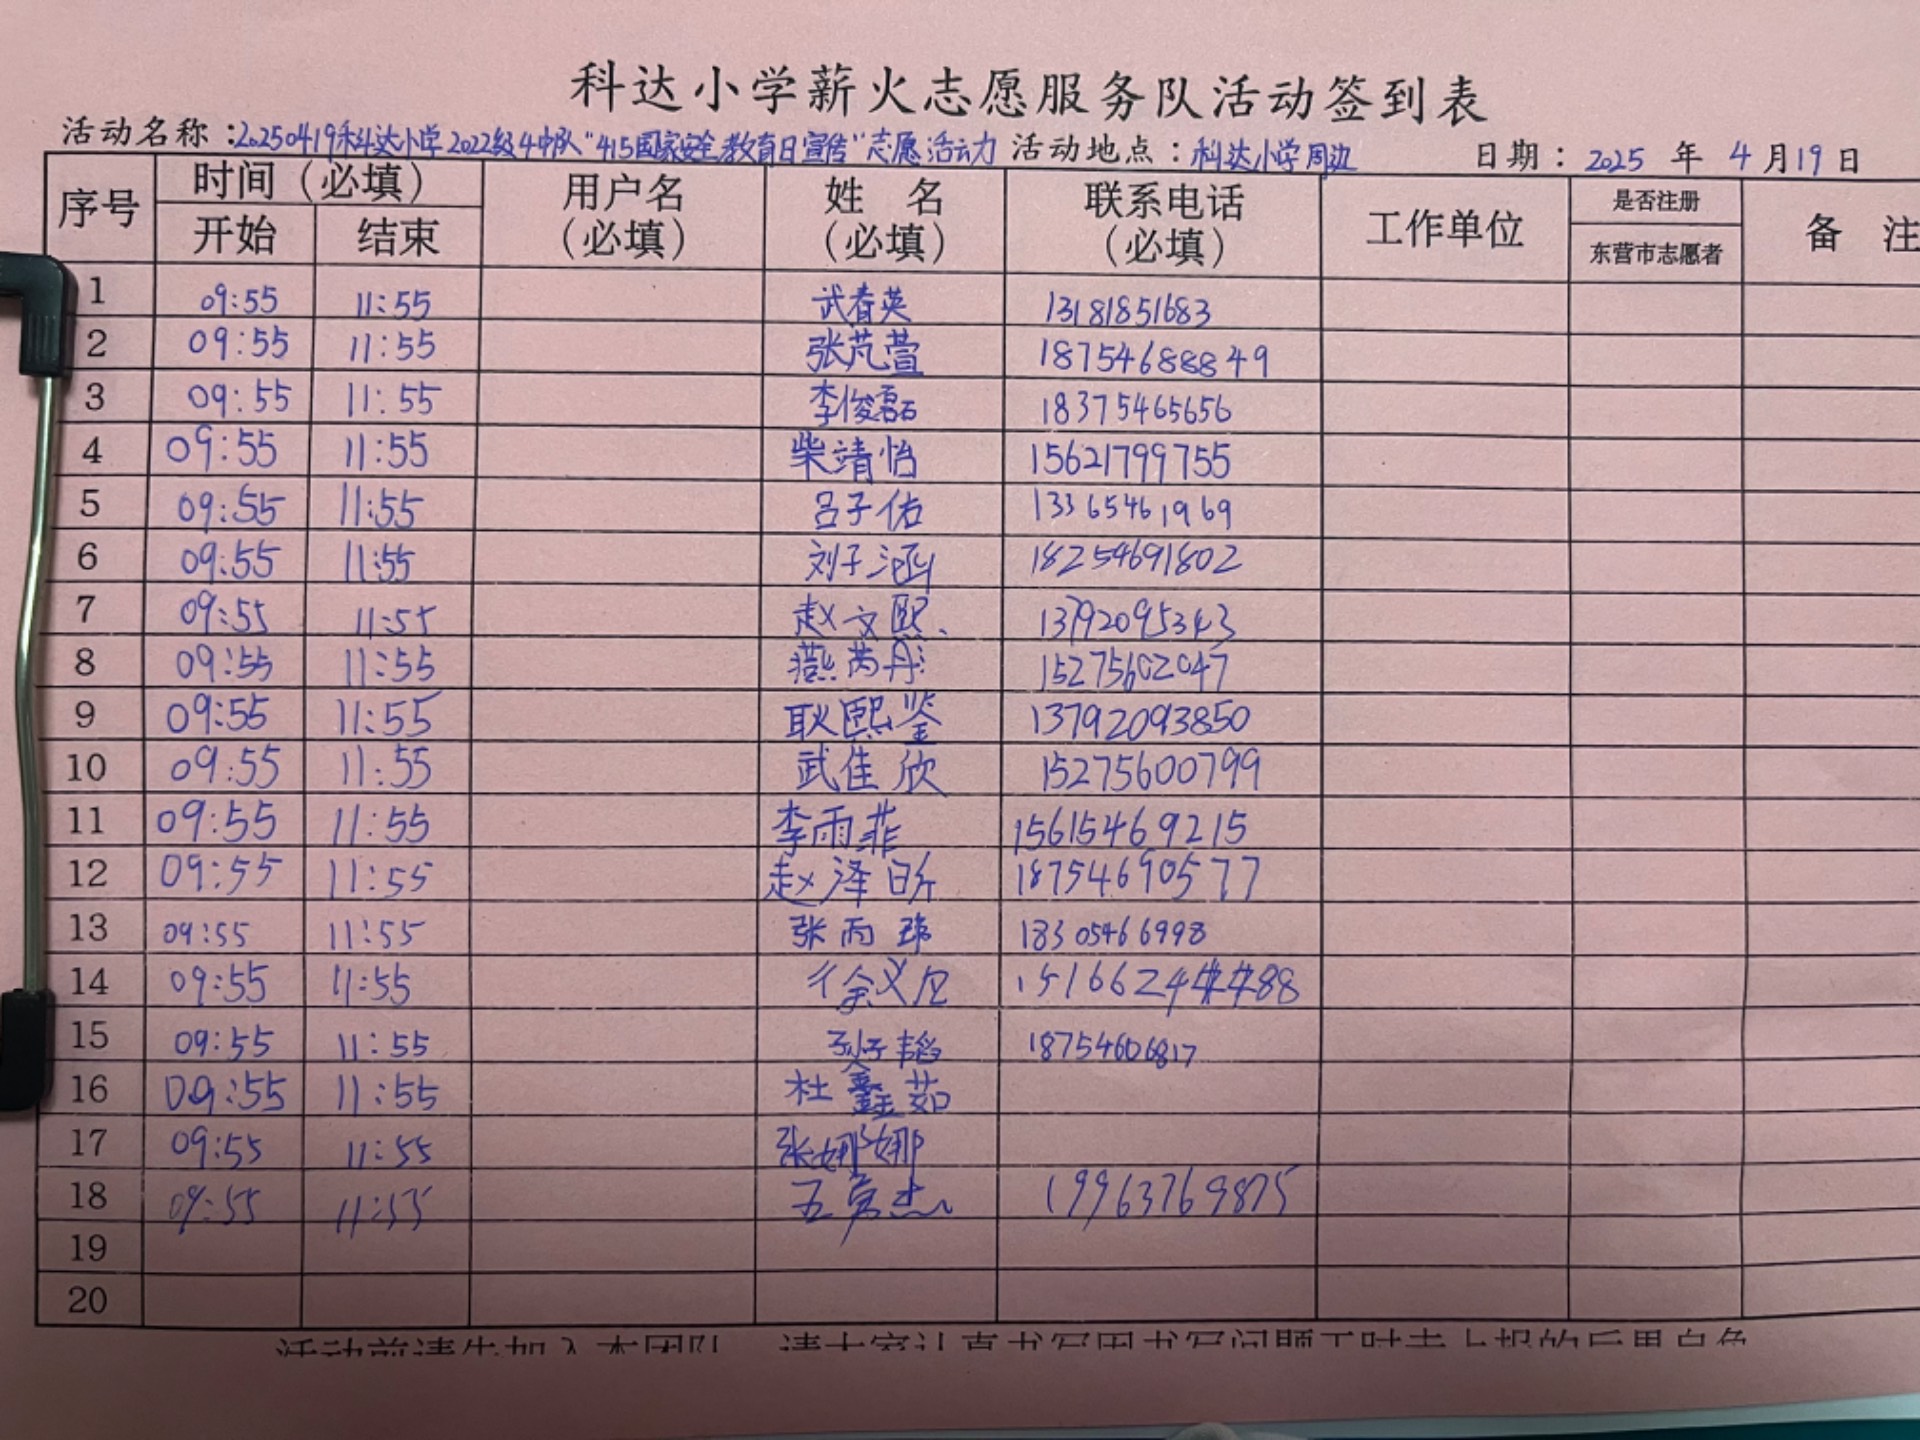 科达小学薪火志愿服务队活动签到表
活动名称：20250419科达小学2022级4中队“415国家安全教育日宣传”志愿活动 活动地点：科达小学周边 日期：2025 年 4 月 19 日
序号 时间（必填） 用户名（必填） 姓 名（必填） 联系电话（必填） 工作单位 是否注册 备 注
开始 结束 东营市志愿者
1 09:55 11:55 武春英 13181851683
2 09:55 11:55 张芃萱 18754688849
3 09:55 11:55 李俊磊 18375465656
4 09:55 11:55 柴靖怡 15621799755
5 09:55 11:55 吕子佑 13365461969
6 09:55 11:55 刘子涵 18254691802
7 09:55 11:55 赵文熙 13792095343
8 09:55 11:55 燕芮彤 15275602047
9 09:55 11:55 耿熙鉴 13792093850
10 09:55 11:55 武佳欣 15275600799
11 09:55 11:55 李雨菲 15615469215
12 09:55 11:55 赵泽昕 18754690577
13 09:55 11:55 张丙 18305466998
14 09:55 11:55 徐义
15 09:55 11:55 孙子韬 18754606817
16 09:55 11:55 杜鑫茹
17 09:55 11:55 张娜娜
18 09:55 11:55 19963769875
19
20